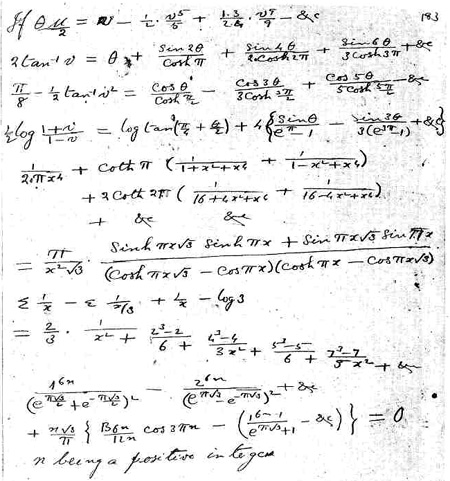 183
If θμ/2 = v - 1/2 · v⁵/5 + 1.3/2.4 · v⁹/9 - &c
2 tan⁻¹ v = θ + sin 2θ/cosh π + sin 4θ/2 cosh 2π + sin 6θ/3 cosh 3π + &c
π/8 - 1/2 tan⁻¹ v² = cos θ/cosh π/2 - cos 3θ/3 cosh 3π/2 + cos 5θ/5 cosh 5π/2 - &c
1/2 log (1+v)/(1-v) = log tan (π/4 + θ/2) + 4 { sin θ/(e^π - 1) - sin 3θ/3(e^3π - 1) + &c }
1/2πx⁴ + coth π ( 1/(1+x²+x⁴) + 1/(1-x²+x⁴) )
+ 2 coth 2π ( 1/(16+4x²+x⁴) + 1/(16-4x²+x⁴) )
+ &c &c
= π/x²√3 · (sinh πx√3 sinh πx + sin πx√3 sin πx)/((cosh πx√3 - cos πx)(cosh πx - cos πx√3))
Σ 1/x - Σ 1/(x/3) + 1/x - log 3
= 2/3 · 1/x² + (2³-2)/6 + (4³-4)/3x² + (5³-5)/6 + (7³-7)/5x² + &c
1^6n/(e^(π√3/2) + e^(-π√3/2))² - 2^6n/(e^(π√3) - e^(-π√3))² + &c
+ n√3/π { B6n/12n cos 3πn - ( 1^(6n-1)/(e^(π√3) + 1) - &c ) } = 0
n being a positive integer